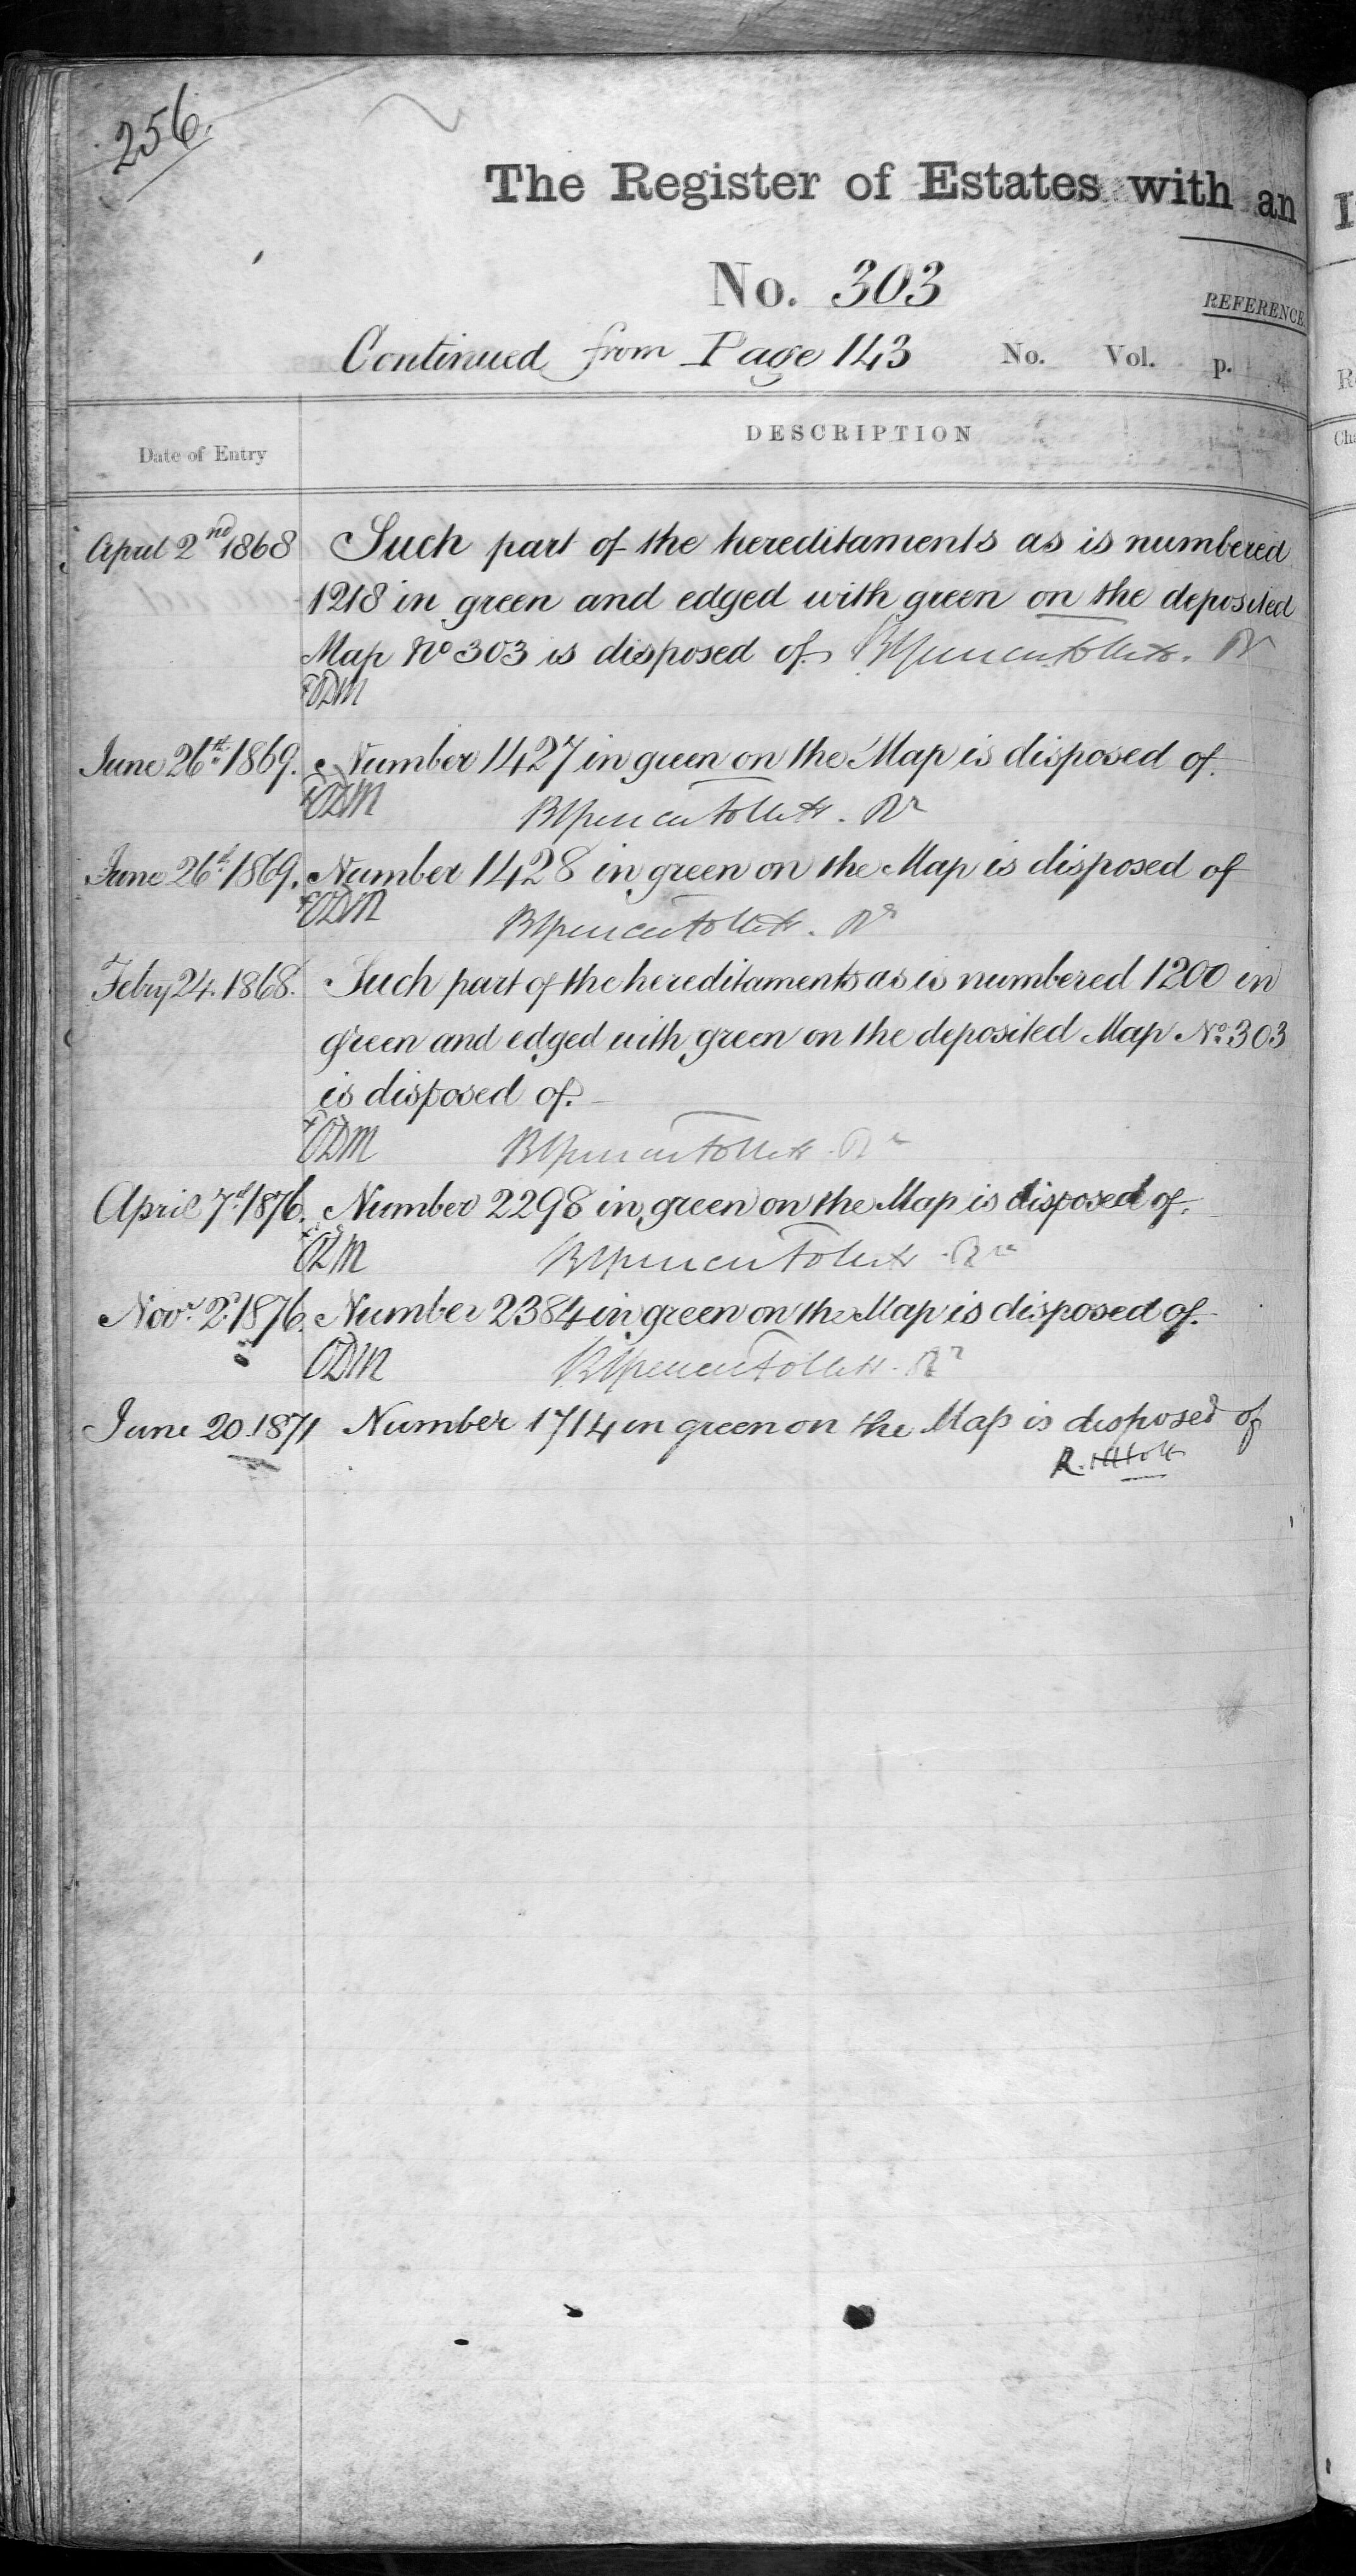 256.
The Register of Estates with an
No. 303
REFERENCE
Continued from Page 143 No. Vol. p.
DESCRIPTION
Date of Entry
April 2nd 1868 Such part of the hereditaments as is numbered
1218 in green and edged with green on the deposited
Map No 303 is disposed of.
ODM
June 26th 1869. Number 1427 in green on the Map is disposed of.
ODM
June 26th 1869. Number 1428 in green on the Map is disposed of
ODM
Febry 24. 1868. Such part of the hereditaments as is numbered 1200 in
green and edged with green on the deposited Map No. 303
is disposed of.
ODM
April 7th 1876. Number 2298 in green on the Map is disposed of.
ODM
Novr 2d 1876. Number 2384 in green on the Map is disposed of.
ODM
June 20. 1871 Number 1714 in green on the Map is disposed of